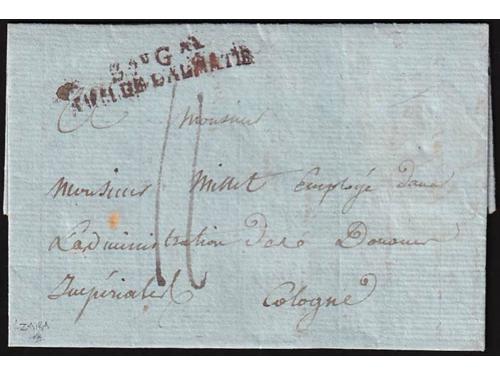 Bau G al
ARM. DE DALMATIE
a Monsieur
Monsieur Millet Employé dans
L'administration dese Douanes
Impériales
Cologne